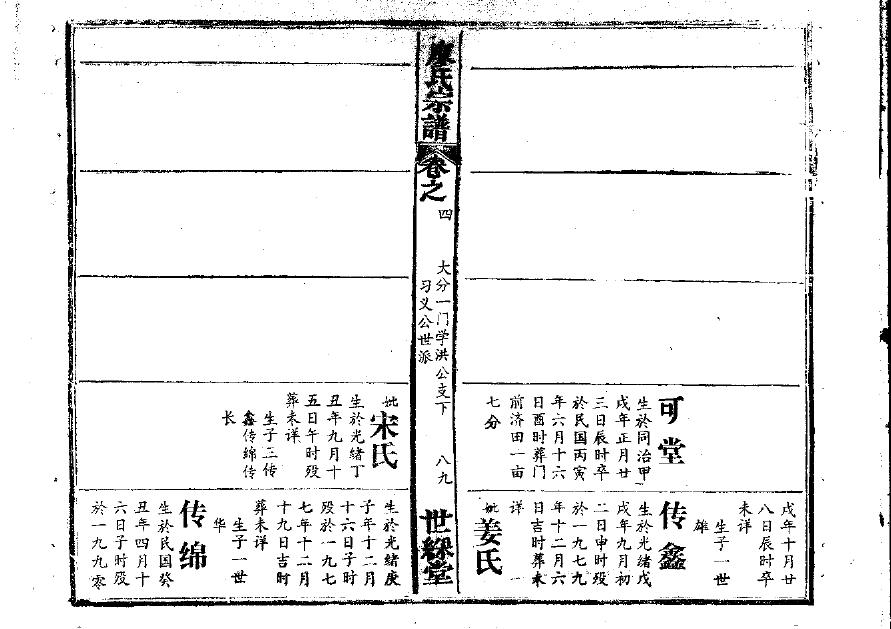 可堂
生於同治甲
戌年正月廿
三日辰时卒
於民国丙寅
年六月十六
日酉时葬门
前济田一亩
七分
戊年十月廿
八日辰时卒
未详
生子一世
雄
传鑫
生於光緒戊
戌年九月初
二日申时殁
於一九七九
年十二月六
日吉时葬未
详 一
妣姜氏
廖氏宗譜
卷之四
大分一门学洪公支下
习义公世派
八九
世綵堂
妣宋氏
生於光緒丁
丑年九月十
五日午时殁
葬未详
生子三传
鑫传绵传
长
生於光緒庚
子年十二月
十六日子时
殁於一九七
七年十二月
十九日吉时
葬未详
生子一世
华
传绵
生於民国癸
丑年四月十
六日子时殁
於一九九零